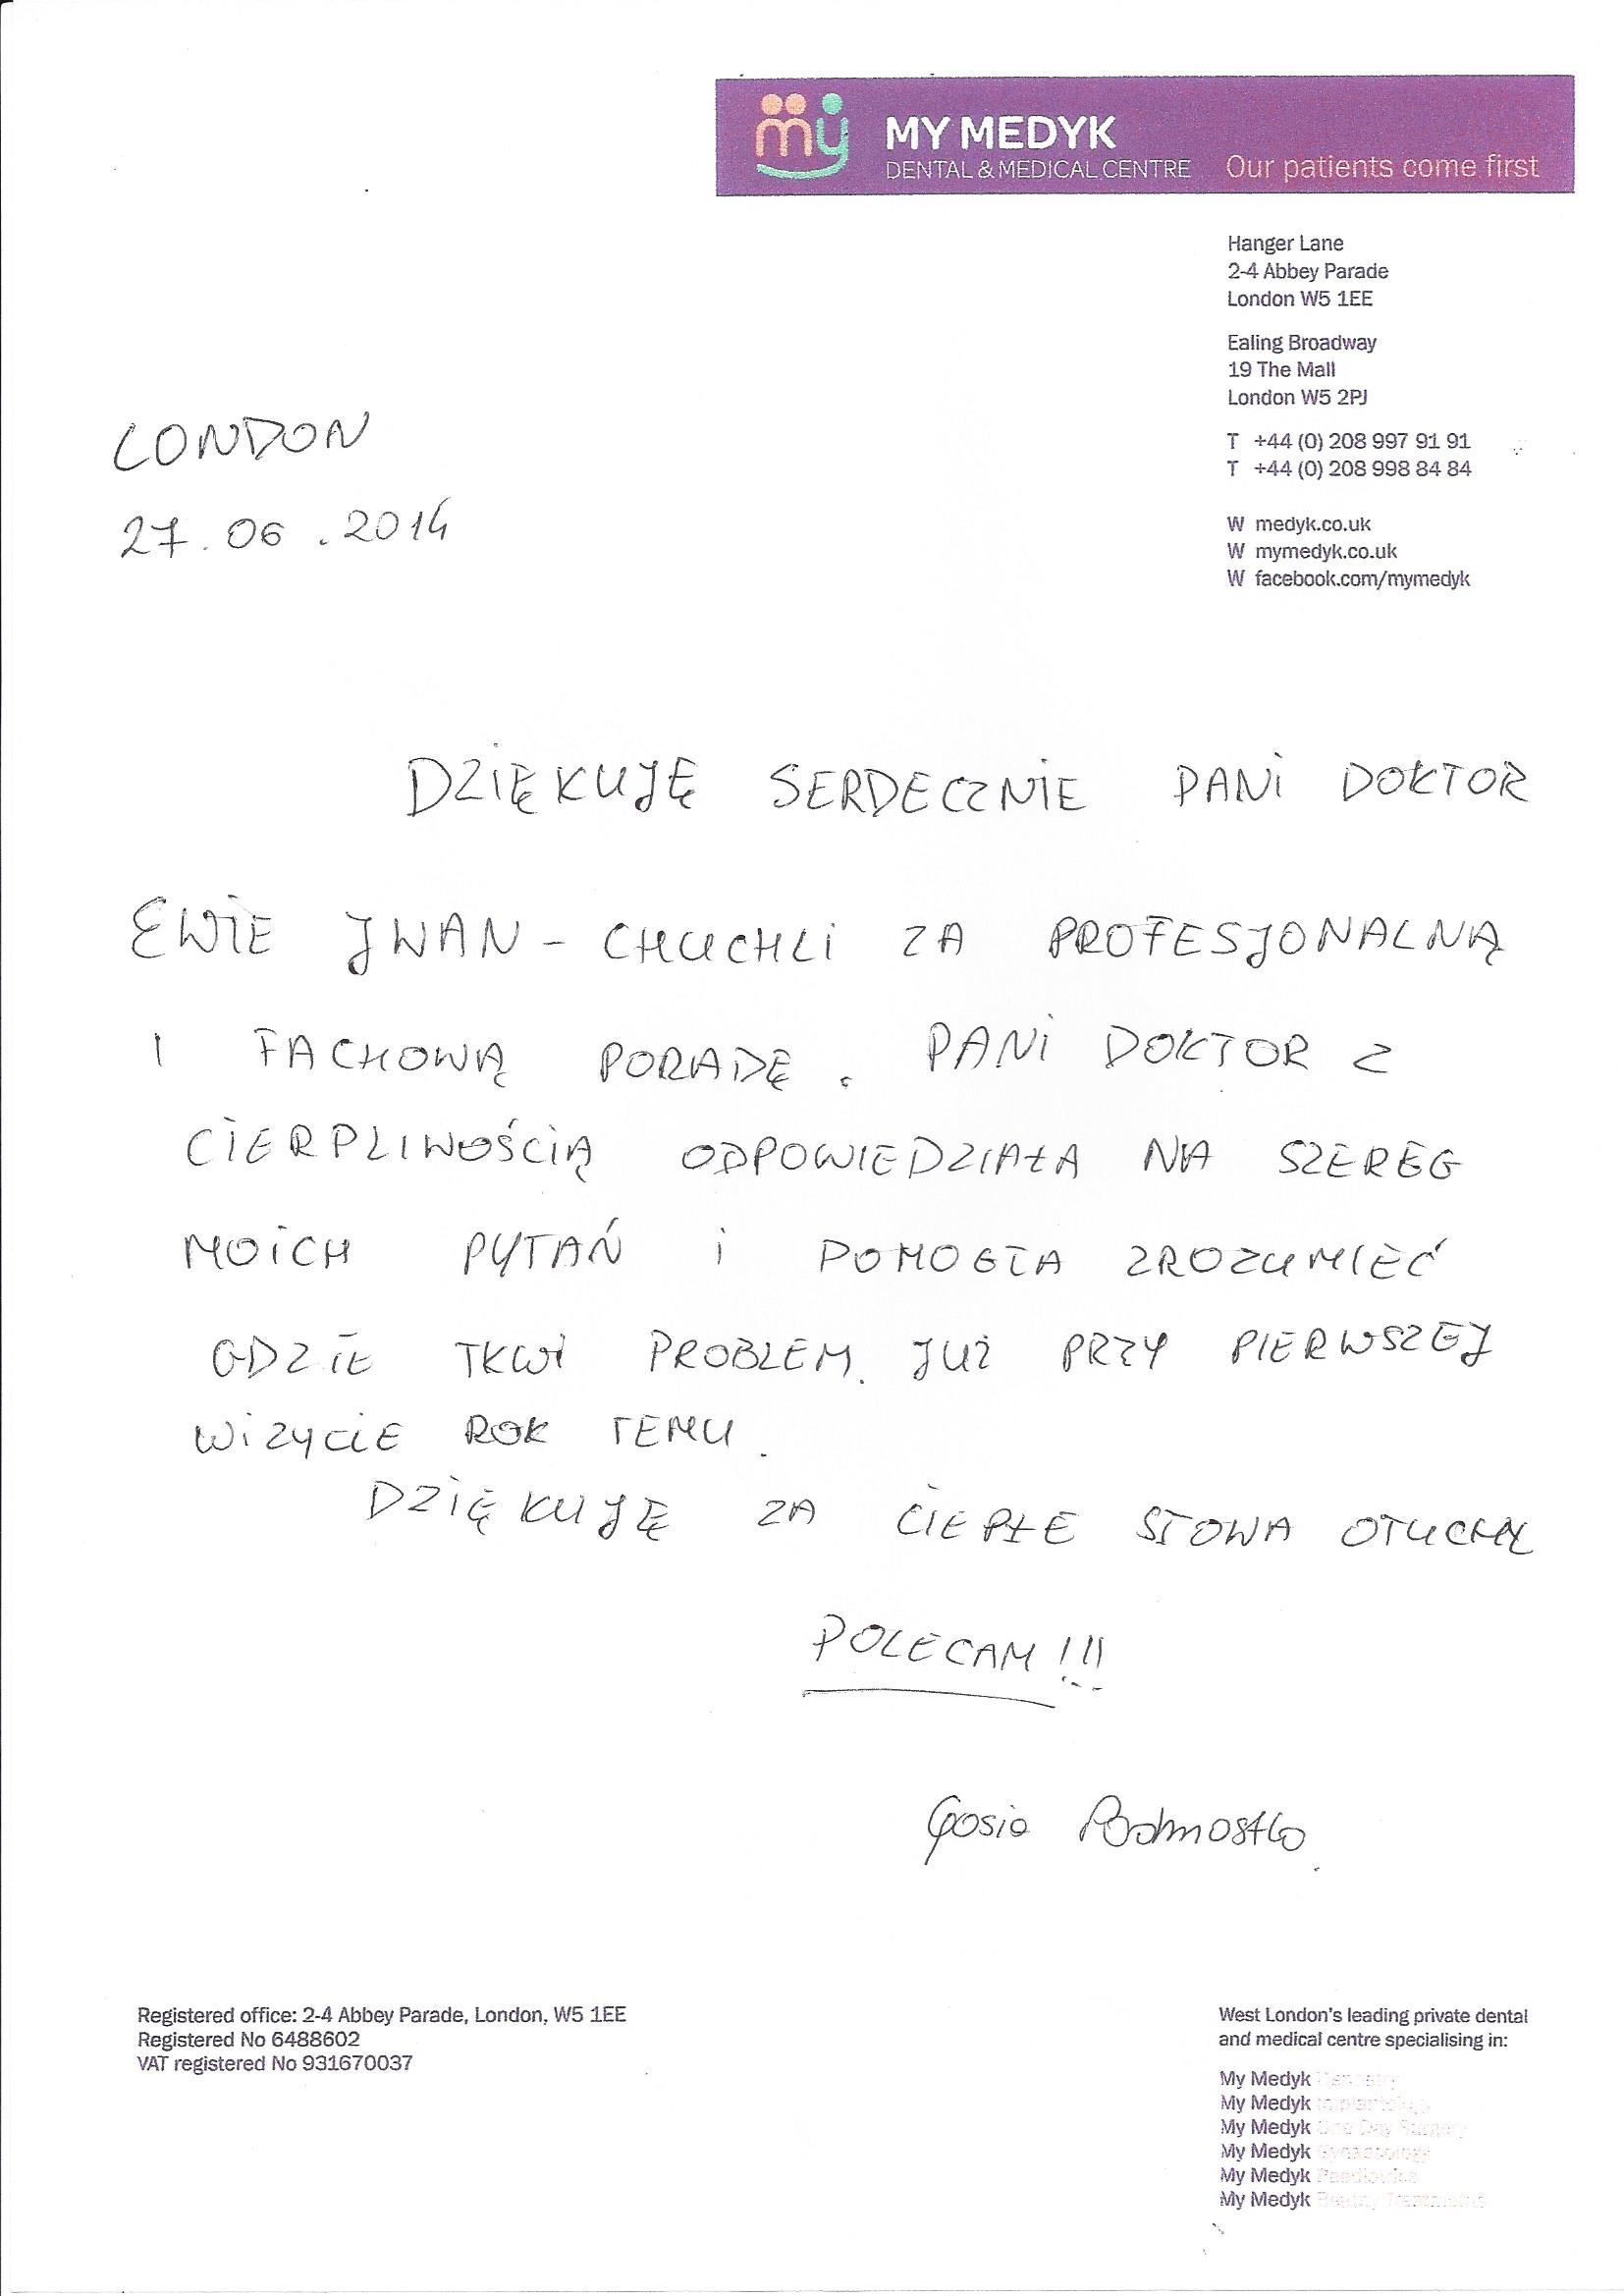 my MY MEDYK
DENTAL & MEDICAL CENTRE Our patients come first
Hanger Lane
2-4 Abbey Parade
London W5 1EE
Ealing Broadway
19 The Mall
London W5 2PJ
T +44 (0) 208 997 91 91
T +44 (0) 208 998 84 84
W medyk.co.uk
W mymedyk.co.uk
W facebook.com/mymedyk
LONDON
27.06.2014
DZIĘKUJĘ SERDECZNIE PANI DOKTOR
EWIE JWAN-CHUCHLI ZA PROFESJONALNĄ
I FACHOWĄ PORADĘ. PANI DOKTOR Z
CIERPLIWOŚCIĄ ODPOWIEDZIAŁA NA SZEREG
MOICH PYTAŃ i POMOGŁA ZROZUMIEĆ
GDZIE TKWI PROBLEM. JUŻ PRZY PIERWSZEJ
WIZYCIE ROK TEMU.
DZIĘKUJĘ ZA CIEPŁE SŁOWA OTUCHY
POLECAM!!!
Gosia
Registered office: 2-4 Abbey Parade, London, W5 1EE
Registered No 6488602
VAT registered No 931670037
West London's leading private dental
and medical centre specialising in:
My Medyk Dentistry
My Medyk Implantology
My Medyk One Day Surgery
My Medyk Gynaecology
My Medyk Paediatrics
My Medyk Beauty Treatments